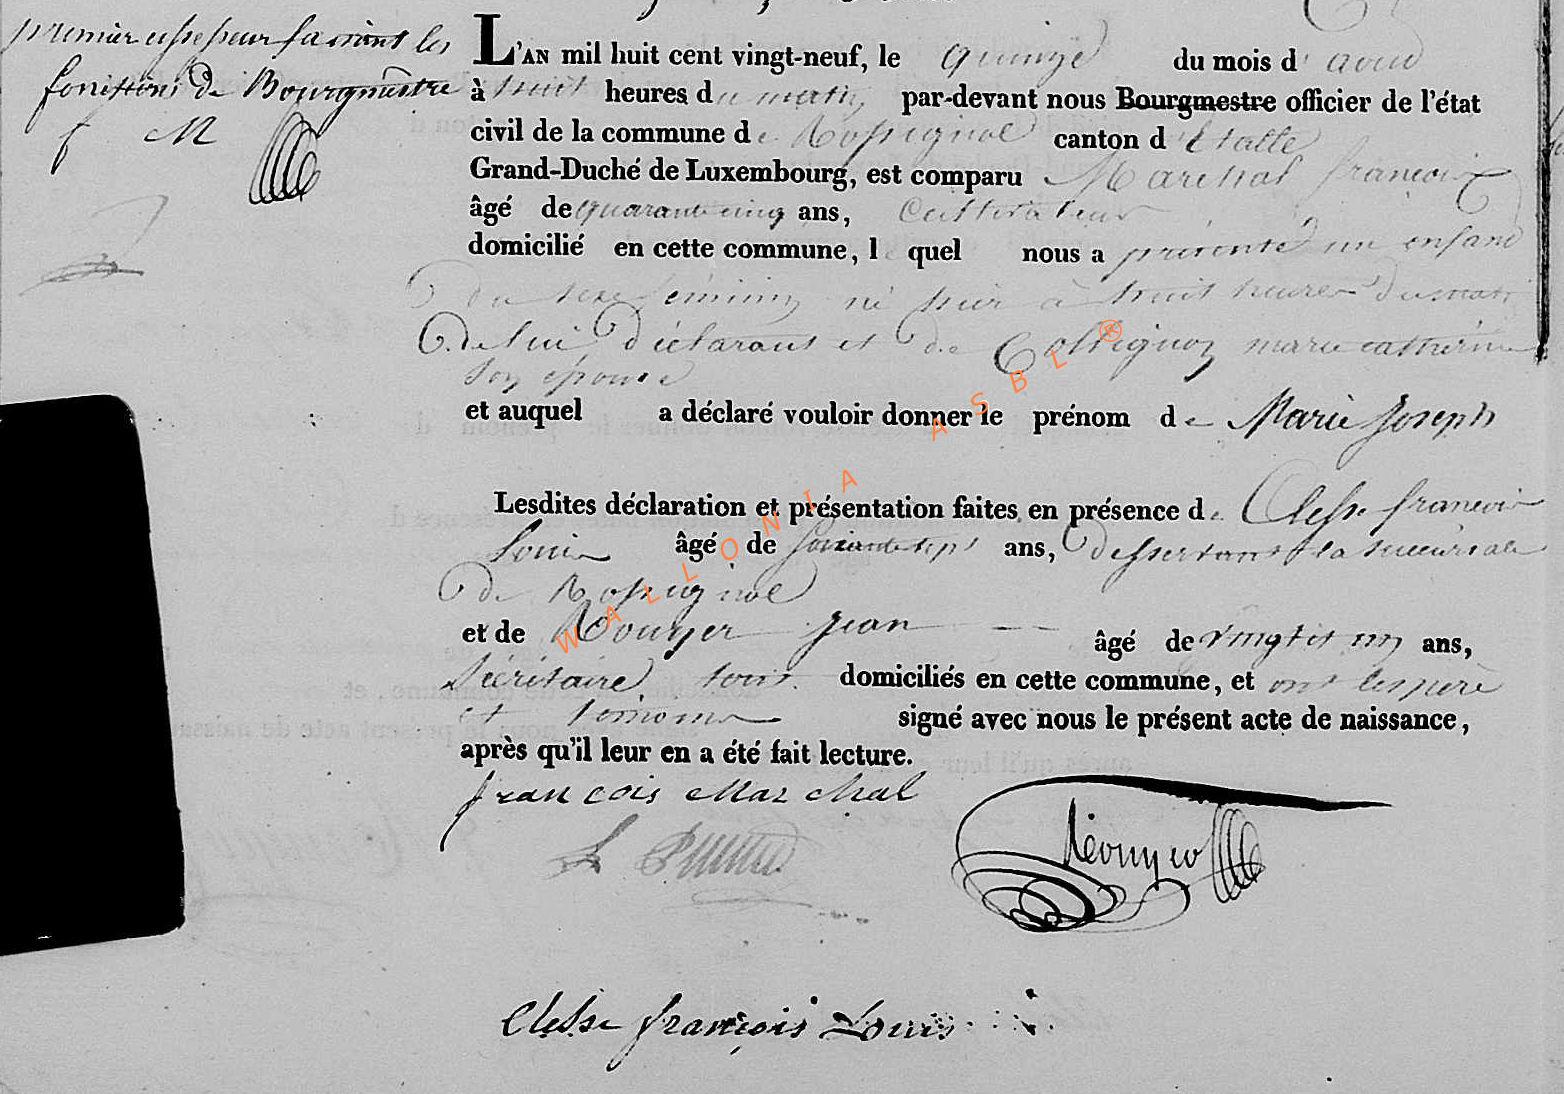 premier assesseur faisant les
fonctions de Bourgmestre
f M
L'AN mil huit cent vingt-neuf, le quinze du mois d'aoud
à huit heures du matin par-devant nous Bourgmestre officier de l'état
civil de la commune de Rossignol canton d'Etalle
Grand-Duché de Luxembourg, est comparu Marchal francois
âgé de quarante cinq ans, Cultivateur
domicilié en cette commune, lequel nous a présenté un enfand
du sexe féminin né hier à huit heures du matin
de lui déclarant et de Collignon marie catherine
son épouse
et auquel a déclaré vouloir donner le prénom de Marie Joseph
Lesdites déclaration et présentation faites en présence de Clesse francois
Louis âgé de soixante sept ans, desservant la succursale
de Rossignol
et de Rouyer jean âgé de vingt et un ans,
Sécrétaire, tous domiciliés en cette commune, et ont les père
et témoins signé avec nous le présent acte de naissance,
après qu'il leur en a été fait lecture.
francois Marchal
Clesse françois Louis
WALLONIA ASBL ®